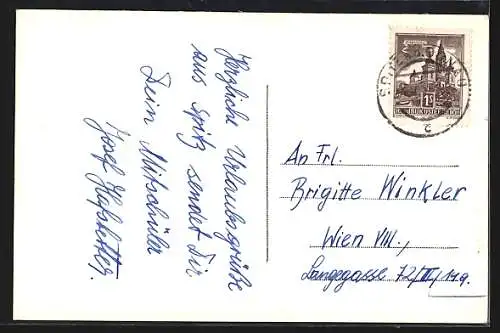 Herzliche Urlaubsgrüße
aus Spitz sendet Dir
Dein Mitschüler
Josef
An Frl.
Brigitte Winkler
Wien VIII.,
Langegasse 72/III/19.
REPUBLIK ÖSTERREICH